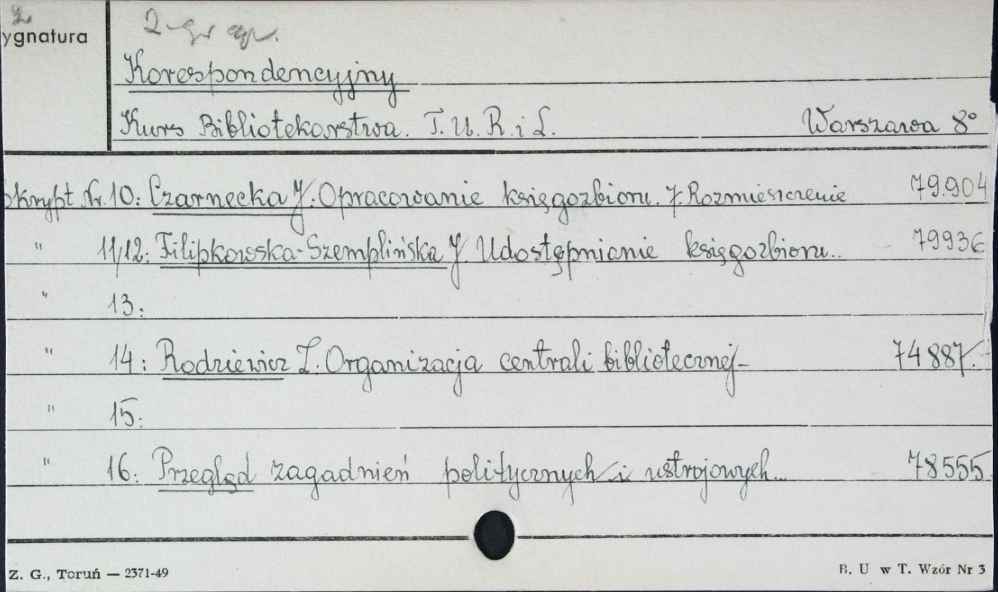 ygnatura
Korespondencyjny
Kurs Bibliotekarstwa. T.U.R. i L. Warszawa 8°
okrypt Nr. 10: Czarnecka J. Opracowanie księgozbioru. 7. Rozmieszczenie 79.904
" 11/12: Filipkowska-Szemplińska J. Udostępnianie księgozbioru.. 79936
" 13:
" 14: Rodziewicz Z. Organizacja centrali bibliotecznej- 74887.-
" 15:
" 16: Przegląd zagadnień politycznych i ustrojowych... 78555
Z. G., Toruń — 2371-49 B. U w T. Wzór Nr 3